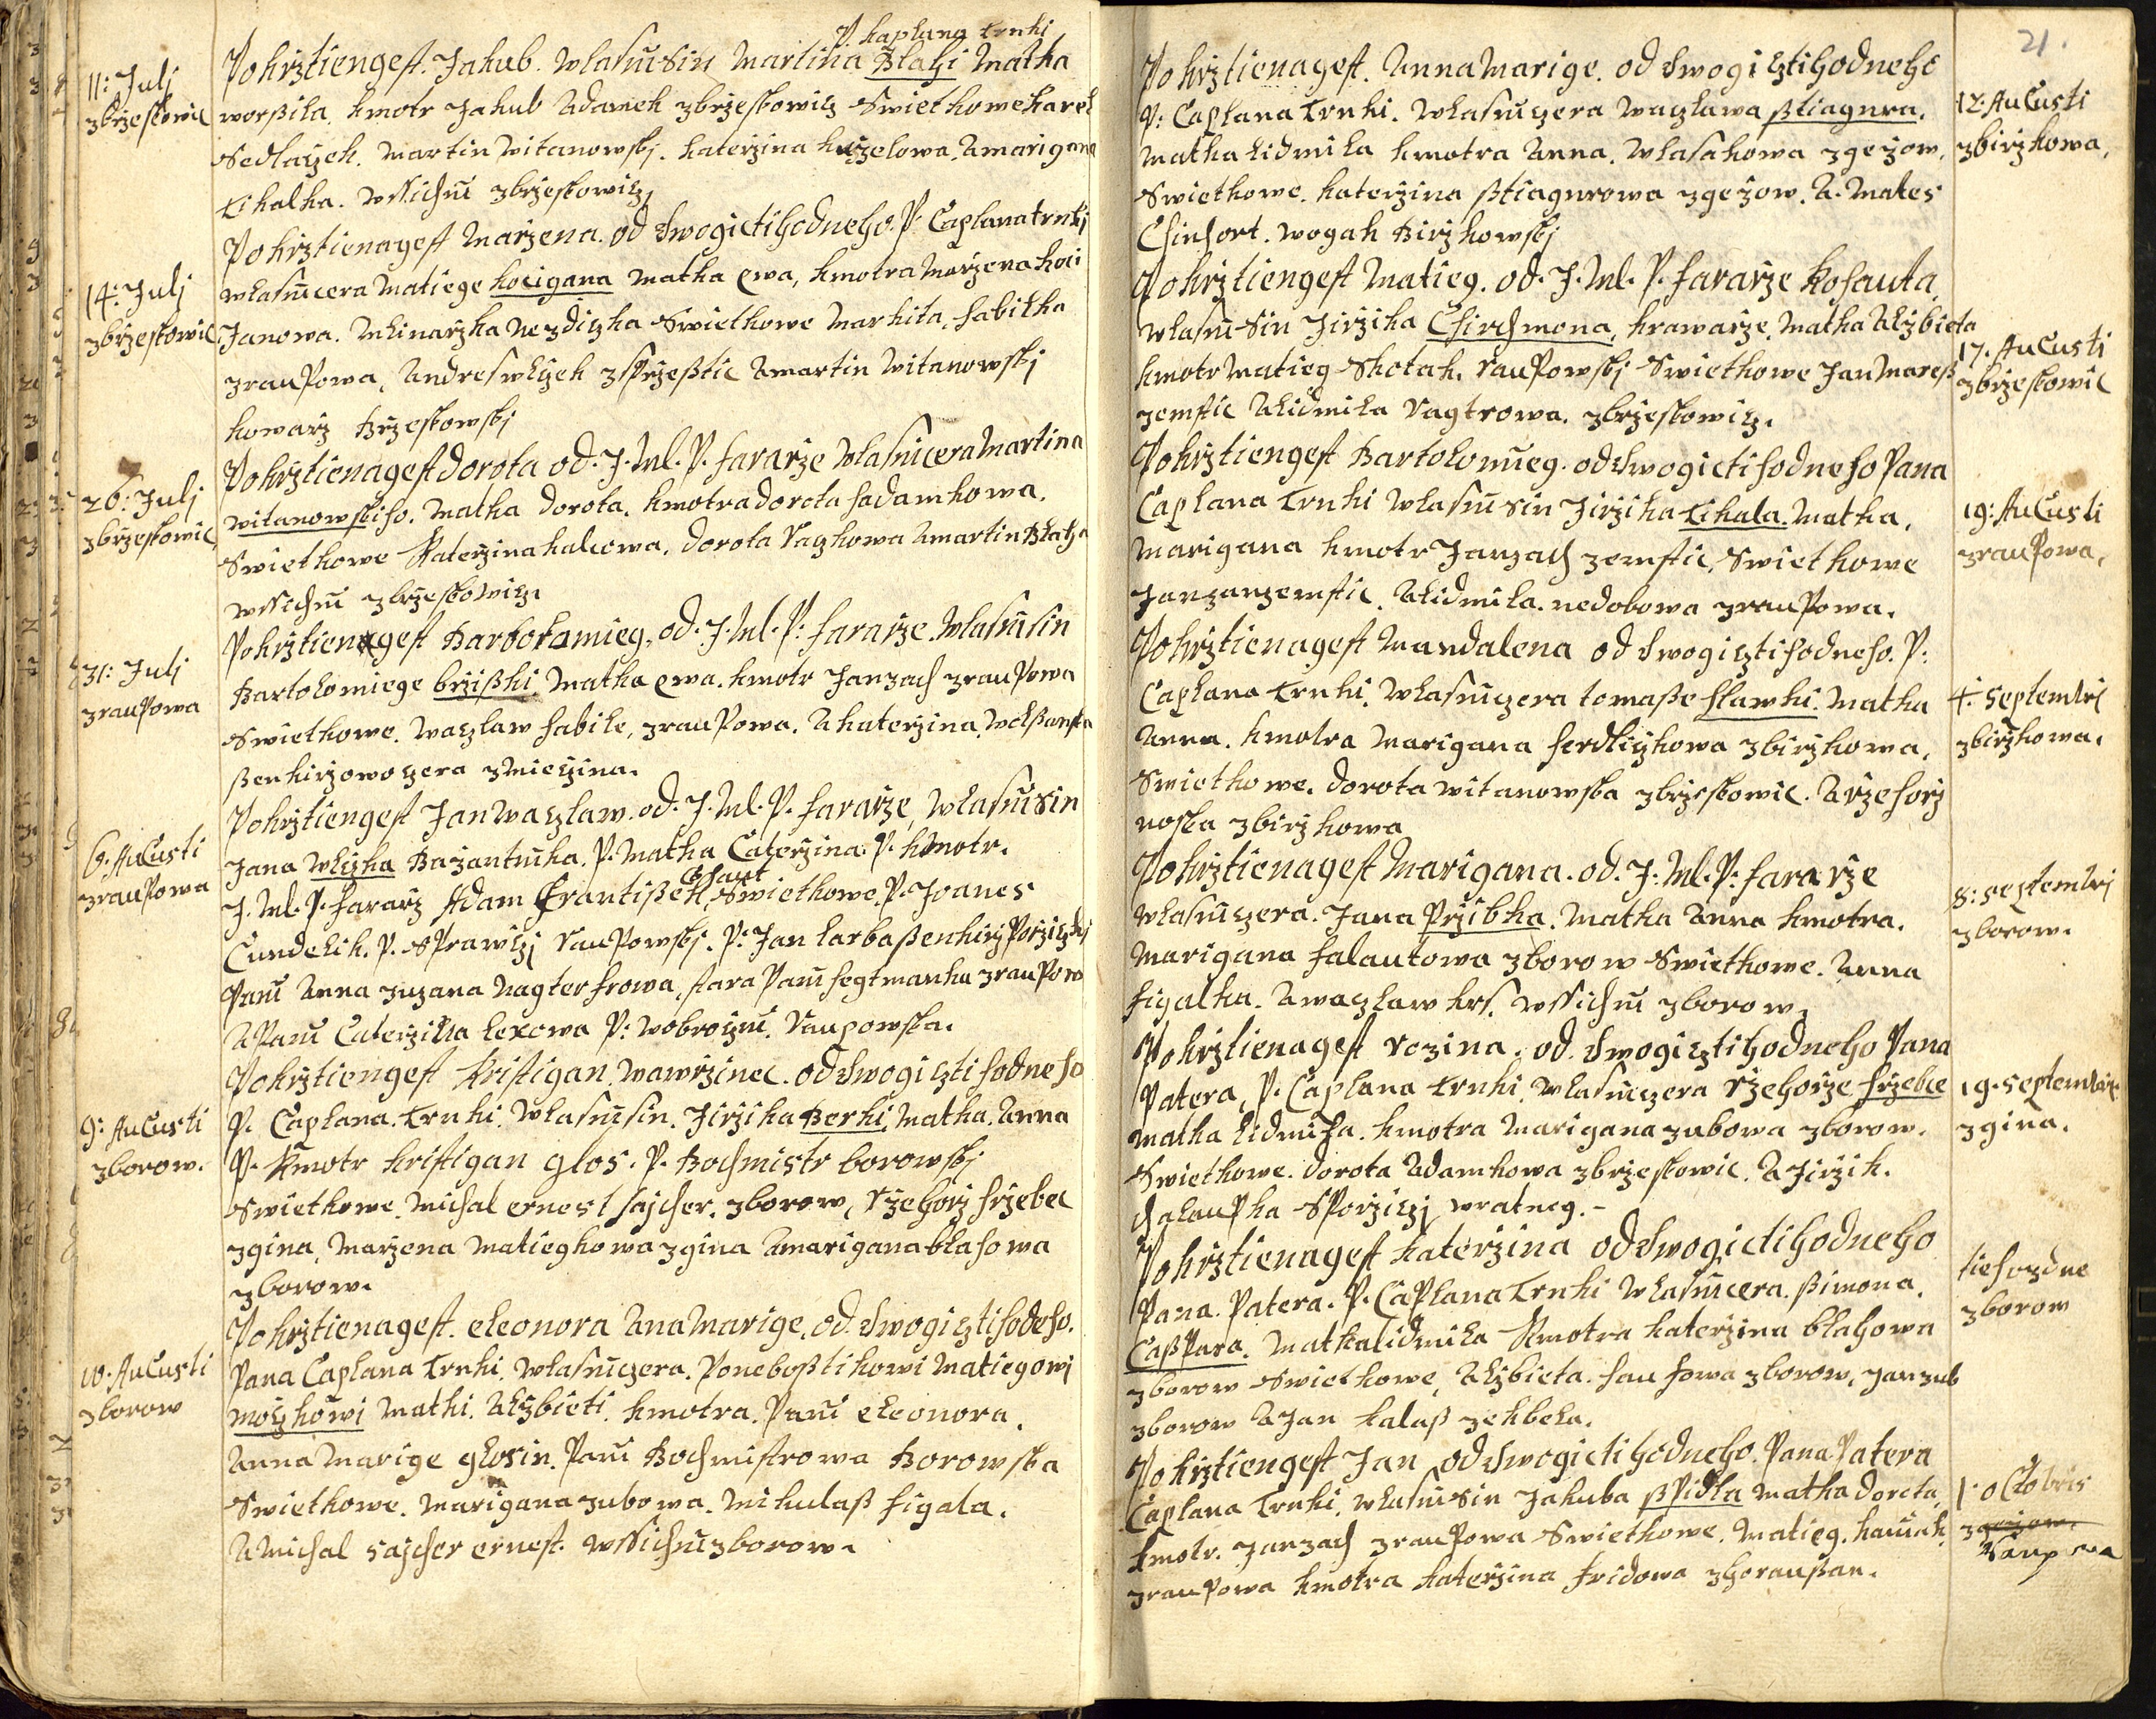 P. kaplana trnki
11: Julj
zbrżeskowic
Pokrżtiengest. Jakub. wlasnisin Martina Blahi Matka
worßila, kmotr Jakub Adamek zbrżeskowicz Swietkowe karel
Sedlaczek. Martin Witanowskj. katerżina kużelowa. Amarigana
Cikalka. wssichni zbrżeskowicz
14: Julj
zbrżeskowic
Pokrżtienagest Marżena. od Dwogictihodneho. P: Caplana trnki
wlasnicera Matiege kocigana Matka ewa, kmotra Marżena koci
Janowa. Mlinarżka Nezdiczka Swietkowe Markita, habilka
zraupowa, Andres wlczek zSprżeßtic Amartin Witanowskj
kowarż Brżeskowskj
26: Julj
zbrżeskowic
Pokrżtienagest dorota od. J. Ml. P. fararże wlasnicera Martina
witanowskiho. Matka dorota. kmotra dorota hadamkowa.
Swietkowe Katerżina kalcowa. dorota Vaczkowa Amartin Blaha
wssichni zbrżeskowicz
31: Julj
zraupowa
Pokrżtiengest Barbolomieg. od. J. Ml. P: fararże. wlasnisin
Bartolomiege brżißki Matka ewa. kmotr Janzach zraupowa
Swietkowe. waczlaw habile, zraupowa. A katerżina. wolßanska
ßenkirżowo czera zMieczina.
6. Augusti
zraupowa
Pokrżtiengest Jan Waczlaw. od. J. Ml. P. fararże, wlasnisin
Jana wlczka Bażantnika. P. Matka Caterżina. P. kmotr.
J. Ml. P. fararż Adam Frantißek Cohaut, Swietkowe. P. Joanes
Cundelik. P. Sprawczj raupowskj. P: Jan larbaßenkirż Porżiczkj
Pani Anna zuzana Nagterfrowa, stara Pani hegtmanka zraupow
A Pani Caterżina lexowa P: wobrożni Raupowska.
9: Augusti
zborow.
Pokrżtiengest kristigan wawrżinec. od Dwogicztihodneho
P. Caplana. trnki. wlasnisin. Jirżika Berki, Matka. Anna
P. kmotr kristigan glos. P. Bochmistr borowskj
Swietkowe. Michal ernest hajcher. zborow, Rżehorż hrżebec
zgina, Marżena Matiegkowa zgina Amarigana blahowa
zborow.
10. Augusti
zborow
Pokrżtienagest. eleonora Ana Marige. od Dwogicztihodeho.
Pana Caplana trnki, wlasniczera. Poneboßtikowi Matiegowi
Moczkowi Matki. Alżbieti. kmotra. Pani eleonora.
Anna Marige glosin. Pani Bochmistrowa Borowska
Swietkowe. Marigana zubowa. Mikulaß figala.
A Michal Sajcher ernest. wssichni zborow.
21.
12. Augusti
zbirżkowa,
Pokrżtienagest. Anna Marige. od Dwogicztihodneho
P: Caplana trnki. wlasniczera waczlawa ßtiagnra.
Matka lidmila kmotra Anna. wlasakowa zgeżow.
Swietkowe. katerżina ßtiagnrowa zgeżow. A. Mates
Chinhort. wogak Birżkowskj
17. Augusti
zbrżeskowic
Pokrżtiengest Matieg. od. J. Ml. P. fararże kohauta,
wlasni Sin Jirżika Chirchmona, krawarże. Matka Alżbieta
kmotr Matieg Skotak. raupowskj Swietkowe Jan Mareß
zemstic A lidmila Vagtrowa. zbrżeskowicz.
19: Augusti
zraupowa,
Pokrżtiengest Bartolomieg. od Dwogictihodneho Pana
Caplana trnki wlasni Sin Jirżika Cikala. Matka.
Marigana kmotr Janzach zemstic, Swietkowe
Janzanzemstic. A lidmila. nedobowa zraupowa.
4. Septembrj
zbirżkowa.
Pokrżtienagest Mandalena od Dwogicztihodneho. P:
Caplana trnki. wlasniczera tomaße hlawki. Matka
Anna. kmotra Marigana ferdliczkowa zbirżkowa.
Swietkowe. dorota witanowska zbrżeskowic. A rżehorż
noska zbirżkowa
8: Septembrj
zborow.
Pokrżtienagest Marigana. od. J. Ml. P: fararże
wlasniczera. Jana Prżibka. Matka Anna kmotra.
Marigana falautowa zborow Swietkowe. Anna
figalka. A waczlaw krs. wssichni zborow.
19. Septembris
zgina.
Pokrżtienagest rozina. od Dwogicztihodneho Pana
Patera, P. Caplana trnki. wlasniczera rżehorże hrżebce
Matka lidmila. kmotra Marigana zubowa zborow.
Swietkowe. dorota Adamkowa zbrżeskowic. A Jirżik.
chalaupka SPorżiczj wratneg. -
tiehozdne
zborow
Pokrżtienagest katerżina od Dwogictihodneho
Pana. Patera. P. Caplana trnki wlasnicera. ßimona.
Caßpara. Matka lidmila kmotra katerżina blahowa
zborow Swietkowe, Alżbieta. hauhowa zborow, Jan zub
zborow A Jan kalaß zekbela.
1. octobris
zgeżow.
Raupowa
Pokrżtiengest Jan od Dwogictihodneho. Pana Patera
Caplana trnki. wlasni Sin Jakuba ßpidla Matka dorota,
kmotr. Janzach zraupowa Swietkowe. Matieg. kaunk.
zraupowa kmotra katerżina fridowa zhoraußan.